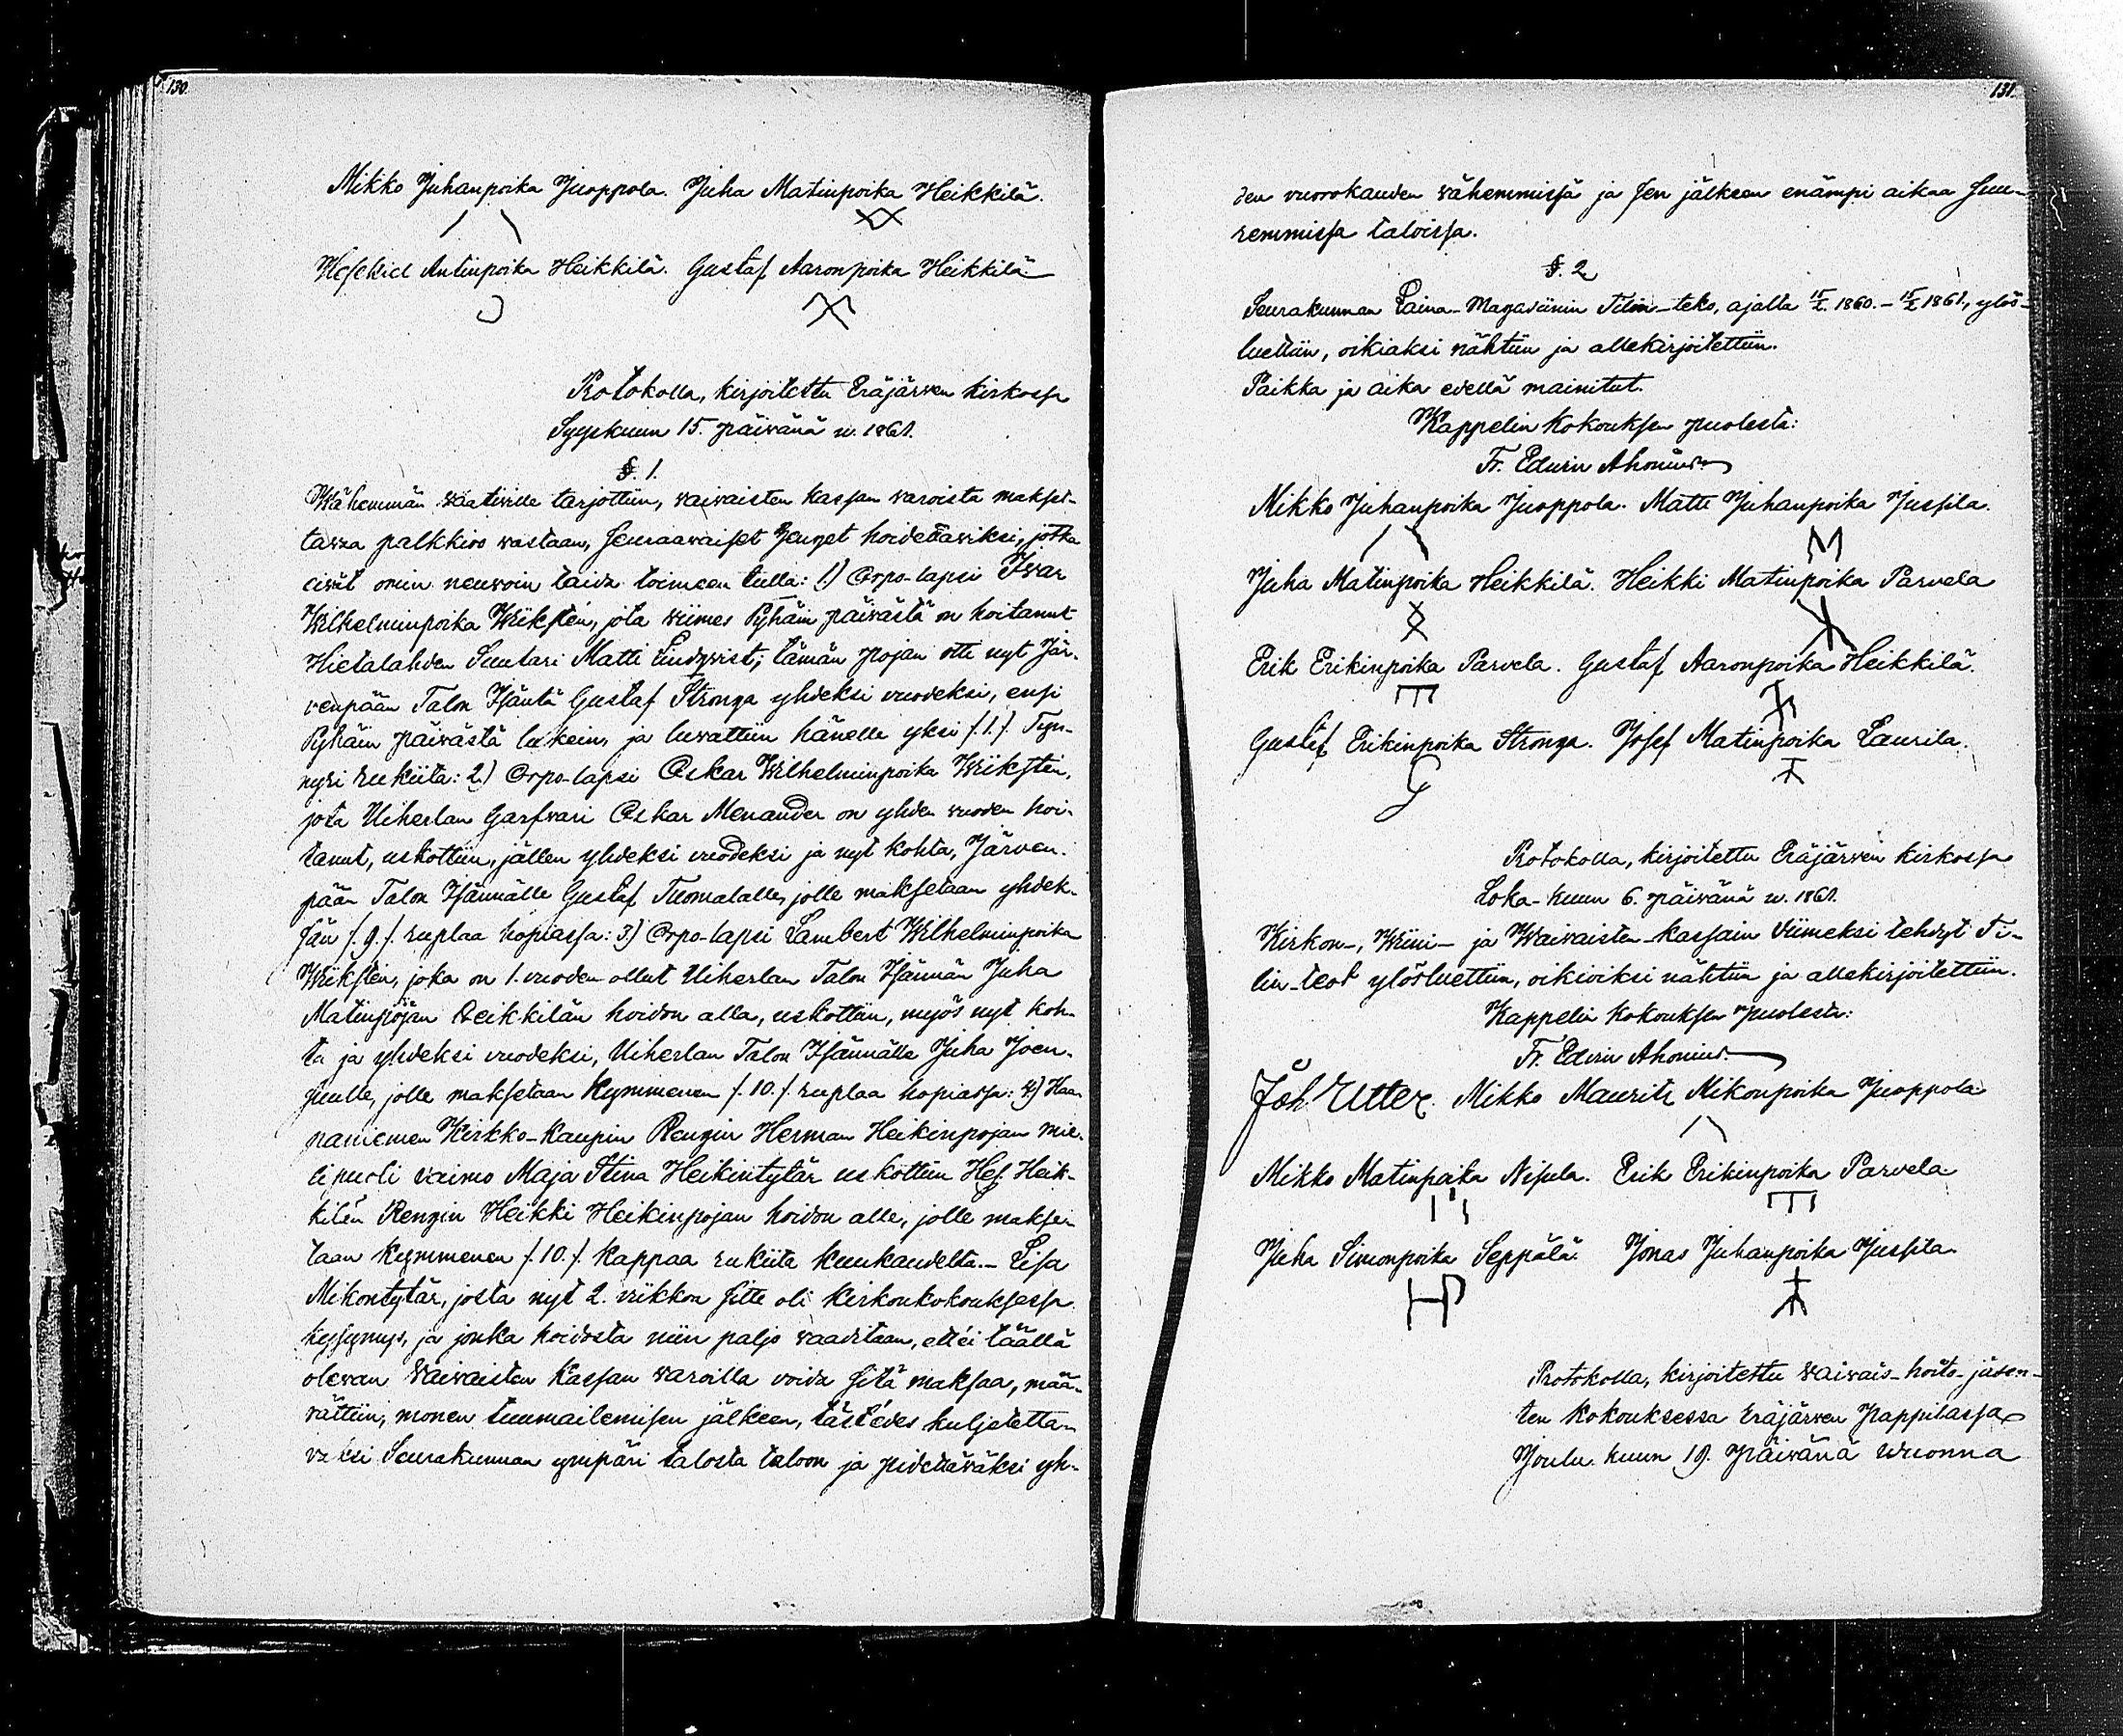 130.
Mikko Juhanpoika Juoppola. Juha Matinpoika Heikkilä.
Hesekiel Antinpoika Heikkilä. Gustaf Aaronpoika Heikkilä
Protokolla, kirjoitettu Eräjärven kirkossa
Syyskuun 15. päivänä w. 1861.
§. 1.
Wähemmän waativille tarjottiin, waivaisten kassan waroista maksettavaa
tavaa palkkioo vastaan, seuraavaiset henget hoidettaviksi, jotka
eivät omin neuwoin taida toimeen tulla: 1) Orpo-lapsi Ivar
Wilhelminpoika Wiiksten, jota viimes Pyhäin päivästä on hoitanut
Hietalahden Suutari Matti Lindqvist; tämän pojan otti nyt Jär-
venpään Talon Isäntä Gustaf Stronga yhdeksi vuodeksi, ensi
Pyhäin päivästä lukein, ja luvattiin hänelle yksi /.1./ Tyn-
nyri rukiita: 2) Orpo-lapsi Oskar Wilhelminpoika Wiiksten,
jota Uiherlan Garfvari Oskar Menander on yhden vuoden hoi-
tanut, uskottiin, jällen yhdeksi vuodeksi ja nyt kohta, Järven-
pään Talon Isännälle Gustaf Tuomalalle, jolle maksetaan yhdek-
sän /.9./ ruplaa hopiassa: 3) Orpo-lapsi Lambert Wilhelminpoika
Wiiksten, joka on 1. vuoden ollut Uiherlan Talon Isännän Juha
Matinpojan Reikkilän hoidon alla, uskottiin, myös nyt koh-
ta ja yhdeksi vuodeksi, Uiherlan Talon Isännälle Juha Joen-
suulle, jolle maksetaan Kymmenen /.10./ ruplaa hopiassa: 4) Haa-
paniemen Kirkko-Kaupin Rengin Herman Heikinpojan mie-
lipuoli vaimo Maja Stina Heikintytär uskottiin Hes. Heik-
kilän Rengin Heikki Heikinpojan hoidon alle, jolle makse-
taan Kymmenen /.10./ Kappaa rukiita kuukaudelta. - Lisa
Mikontytär, josta nyt 2. viikkoa sitte oli kirkonkokouksessa
kysymys, ja jonka hoidosta niin paljo vaaditaan, ett'ei täällä
olevan Vaivaisten Kassan varoilla voida sitä maksaa, mää-
rättiin, monen tuumailemisen jälkeen, täst'edes kuljetetta-
vaksi Seurakunnan ympäri talosta taloon ja pidettäväksi yh-
131.
den vuorokauden vähemmissä ja sen jälkeen enämpi aikaa suu-
remmissa taloissa.
§. 2
Seurakunnan Laina-Magasiinin Tilin-teko, ajalta 15/X. 1860. - 15/X 1861., ylös-
luettiin, oikiaksi nähtiin ja allekirjoitettiin.
Paikka ja aika edellä mainitut.
Kappelin kokouksen puolesta:
Fr. Edwin Ahonius
Mikko Juhanpoika Juoppola. Matti Juhanpoika Jussila.
Juha Matinpoika Heikkilä. Heikki Matinpoika Parvela
Erik Erikinpoika Parvela. Gustaf Aaronpoika Heikkilä.
Gustaf Erikinpoika Stronga. Josef Matinpoika Laurila.
Protokolla, kirjoitettu Eräjärven kirkossa
Loka-kuun 6. päivänä w. 1861.
Kirkon-, Wiini- ja Waivaisten-kassain viimeksi tehdyt Ti-
lin-teot ylösluettiin, oikioiksi nähtiin ja allekirjoitettiin.
Kappelin kokouksen puolesta:
Fr. Edvin Ahonius.
Joh Utter. Mikko Maurits Mikonpoika Juoppola
Mikko Matinpoika Nisula. Erik Erikinpoika Parvela
Juha Simonpoika Seppälä. Jonas Juhanpoika Jussila
Protokolla, kirjoitettu vaivais-hoito-jäsen-
ten Kokouksessa Eräjärven Pappilassa
Joulu-kuun 19. päivänä wuonna